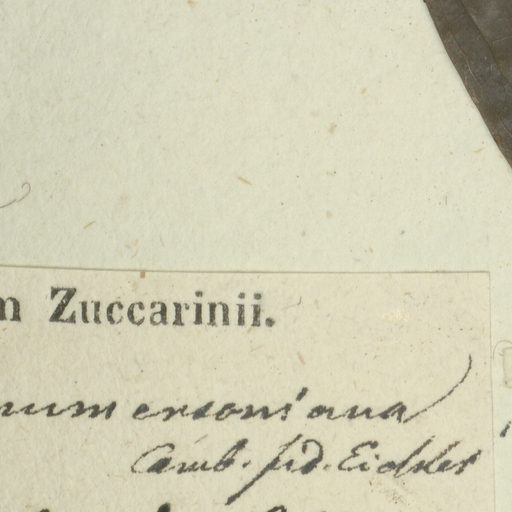 m Zuccarinii.
mmersoniana
Camb. fid. Eichler